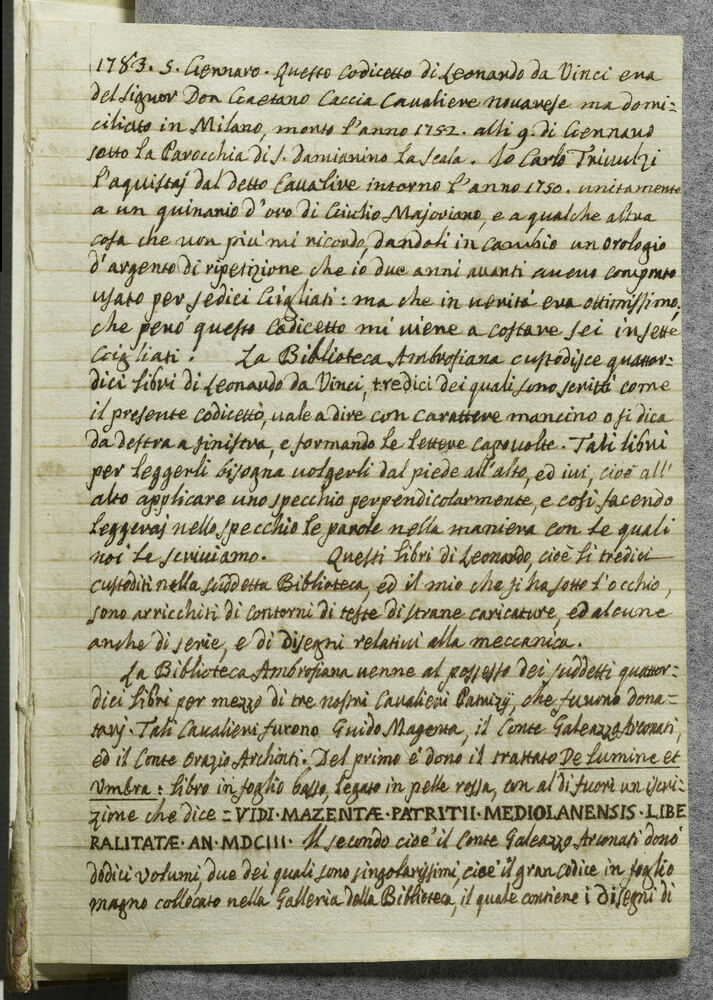 1783. 5. Gennaro. Questo Codicetto di Leonardo da Vinci era
del Signor Don Gaetano Caccia Cavaliere novarese ma domi=
ciliato in Milano, morto l'anno 1752. alli 9. di Gennaro
sotto la Parocchia di S. Damianino la Scala. Io Carlo Trivulzi
l'aquistaj dal detto Cavaliere intorno l'anno 1750. unitamente
a un quinario d'oro di Giulio Majoriano, e a qualche altra
cosa che non più mi ricordo, dandoli in cambio un orologio
d'argento di ripetizione che io due anni avanti avevo comprato
usato per sedici Gigliati: ma che in verità era ottimissimo,
che però questo Codicetto mi viene a costare sei in sette
Gigliati. La Biblioteca Ambrosiana custodisce quattor=
dici libri di Leonardo da Vinci, tredici dei quali sono scritti come
il presente codicetto, vale a dire con carattere mancino o si dica
da destra a sinistra, e formando le lettere capovolte. Tali libri
per leggerli bisogna volgerli dal piede all'alto, ed ivi, cioè all'
alto applicare uno specchio perpendicolarmente, e così facendo
leggeraj nello specchio le parole nella maniera con le quali
noi le scriviamo. Questi libri di Leonardo, cioè li tredici
custoditi nella suddetta Biblioteca, ed il mio che si ha sotto l'occhio,
sono arricchiti di contorni di teste di strane caricature, ed alcune
anche di serie, e di disegni relativi alla meccanica.
La Biblioteca Ambrosiana venne al possesso dei suddetti quattor=
dici libri per mezzo di tre nostri Cavalieri Patrizÿ, che furono dona=
tarj. Tali Cavalieri furono Guido Magenta, il Conte Galeazzo Arconati,
ed il Conte Orazio Archinti. Del primo è dono il trattato De Lumine et
Umbra: libro in foglio basso, legato in pelle rossa, con al di fuori un iscri=
zione che dice = VIDI·MAZENTÆ·PATRITII·MEDIOLANENSIS·LIBE
RALITATÆ·AN·MDCIII· Il secondo cioè il Conte Galeazzo Arconati donò
dodici volumi, due dei quali sono singolarissimi, cioè il gran codice in foglio
magno collocato nella Galleria della Biblioteca, il quale contiene i disegni di